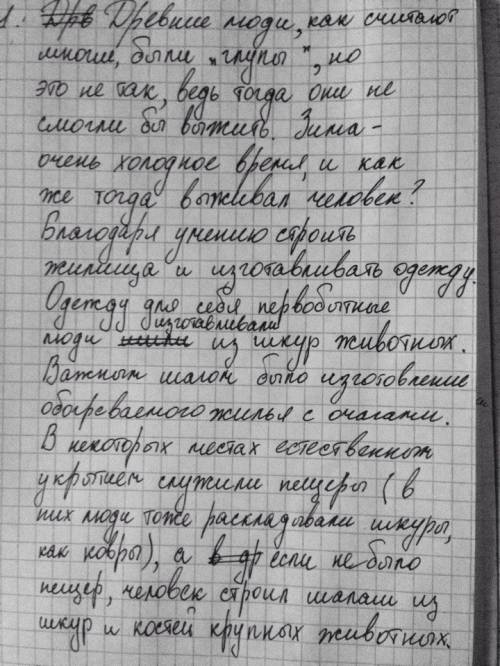 1. Древние люди, как считают
многие, были "глупы", но
это не так, ведь тогда они не
смогли бы выжить. Зима -
очень холодное время, и как
же тогда выживал человек?
Благодаря умению строить
жилища и изготавливать одежду.
Одежду для себя первобытные
люди изготавливали из шкур животных.
Важным шагом было изготовление
обогреваемого жилья с очагами.
В некоторых местах естественным
укрытием служили пещеры (в
них люди тоже раскладывали шкуры,
как ковры), а если не было
пещер, человек строил шалаш из
шкур и костей крупных животных.